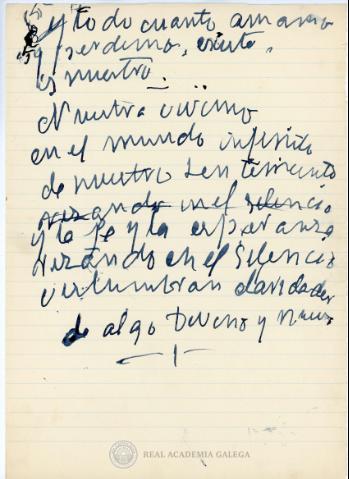 y todo cuanto amamos
y perdemos, existe,
es nuestro
Nuestra vivimo
en el mundo infinito
de nuestro sentimiento
rezando en el silencio
y la fe y la esperanza
rezando en el silencio
vislumbran claridades
de algo Divino y nuevo
REAL ACADEMIA GALEGA